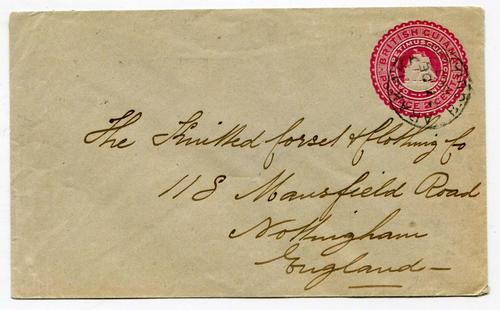 BRITISH GUIANA
POSTAGE 2 CENTS
The Knitted Corset & Clothing Co
118 Mansfield Road
Nottingham
England